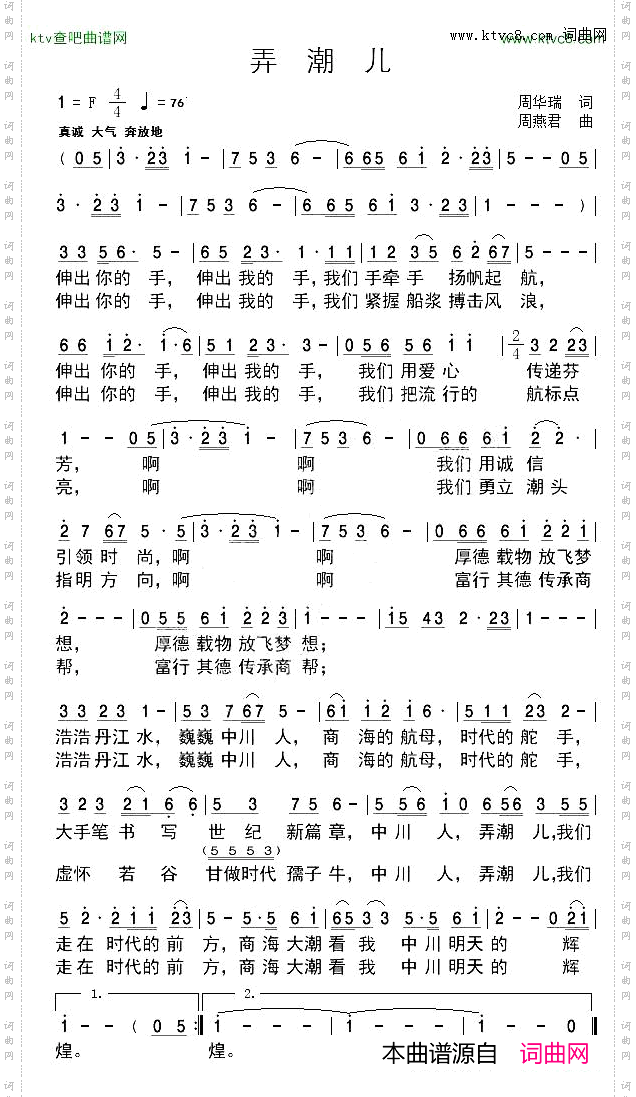 ktv查吧曲谱网
www.ktvc8.com 词曲网
www.ktvc8.com
弄 潮 儿
1 = F 4/4 ♩= 76
周华瑞 词
真诚 大气 奔放地
周燕君 曲
( 0 5 | 3 · 2 3 1 - | 7 5 3 6 - | 6 65 61 2 · 23 | 5 - - 0 5 |
3 · 2 3 1 - | 7 5 3 6 - | 6 65 61 3 · 23 | 1 - - - ) |
3 3 5 6 · 5 - | 6 5 2 3 · 1 · 1 1 | 1 2 35 6 2 67 | 5 - - - |
伸出 你的 手， 伸出 我的 手，我们 手牵 手 扬帆起 航，
伸出 你的 手， 伸出 我的 手，我们 紧握 船浆 搏击风 浪，
6 6 1 2 · 1 · 6 | 5 5 2 3 · 3 - | 0 5 6 5 6 1 1 | 2/4 3 2 23 |
伸出 你的 手， 伸出 我的 手， 我们 用爱 心 传递芬
伸出 你的 手， 伸出 我的 手， 我们 把流 行的 航标点
1 - - 0 5 | 3 · 2 3 1 - | 7 5 3 6 - | 0 6 6 6 1 2 2 · |
芳， 啊 啊 我们 用诚 信
亮， 啊 啊 我们 勇立 潮头
2 7 67 5 · 5 | 3 · 2 3 1 - | 7 5 3 6 - | 0 6 6 6 1 2 2 1 |
引领 时 尚，啊 啊 厚德 载物 放飞梦
指明 方 向，啊 啊 富行 其德 传承商
2 - - - | 0 5 5 6 1 2 2 3 | 1 - - - | 15 43 2 · 23 | 1 - - - |
想， 厚德 载物 放飞梦 想；
帮， 富行 其德 传承商 帮；
3 3 2 3 1 - | 5 3 7 67 5 - | 61 1 2 1 6 · | 5 1 1 23 2 - |
浩浩 丹江 水， 巍巍 中川 人， 商 海的 航母， 时代的 舵 手，
浩浩 丹江 水， 巍巍 中川 人， 商 海的 航母， 时代的 舵 手，
3 2 3 2 1 6 · 6 | 5 3 7 5 6 - | 5 56 1 0 6 56 | 3 - - 5 5 |
大手笔 书 写 世 纪 新篇 章， 中 川 人， 弄潮 儿，我们
( 5 5 5 3 )
虚怀 若 谷 甘做时代 孺子 牛， 中 川 人， 弄潮 儿，我们
5 2 · 2 1 1 23 | 5 · 5 5 6 1 | 65 3 3 5 · 5 6 1 | 2 - - 0 21 |
走在 时代的 前 方，商海 大潮 看 我 中川 明天 的 辉
走在 时代的 前 方，商海 大潮 看 我 中川 明天 的 辉
1. 2.
1 - - ( 0 5 :‖ 1 - - - | 1 - - - | 1 - - 0 ‖
煌。 煌。
本曲谱源自 词曲网